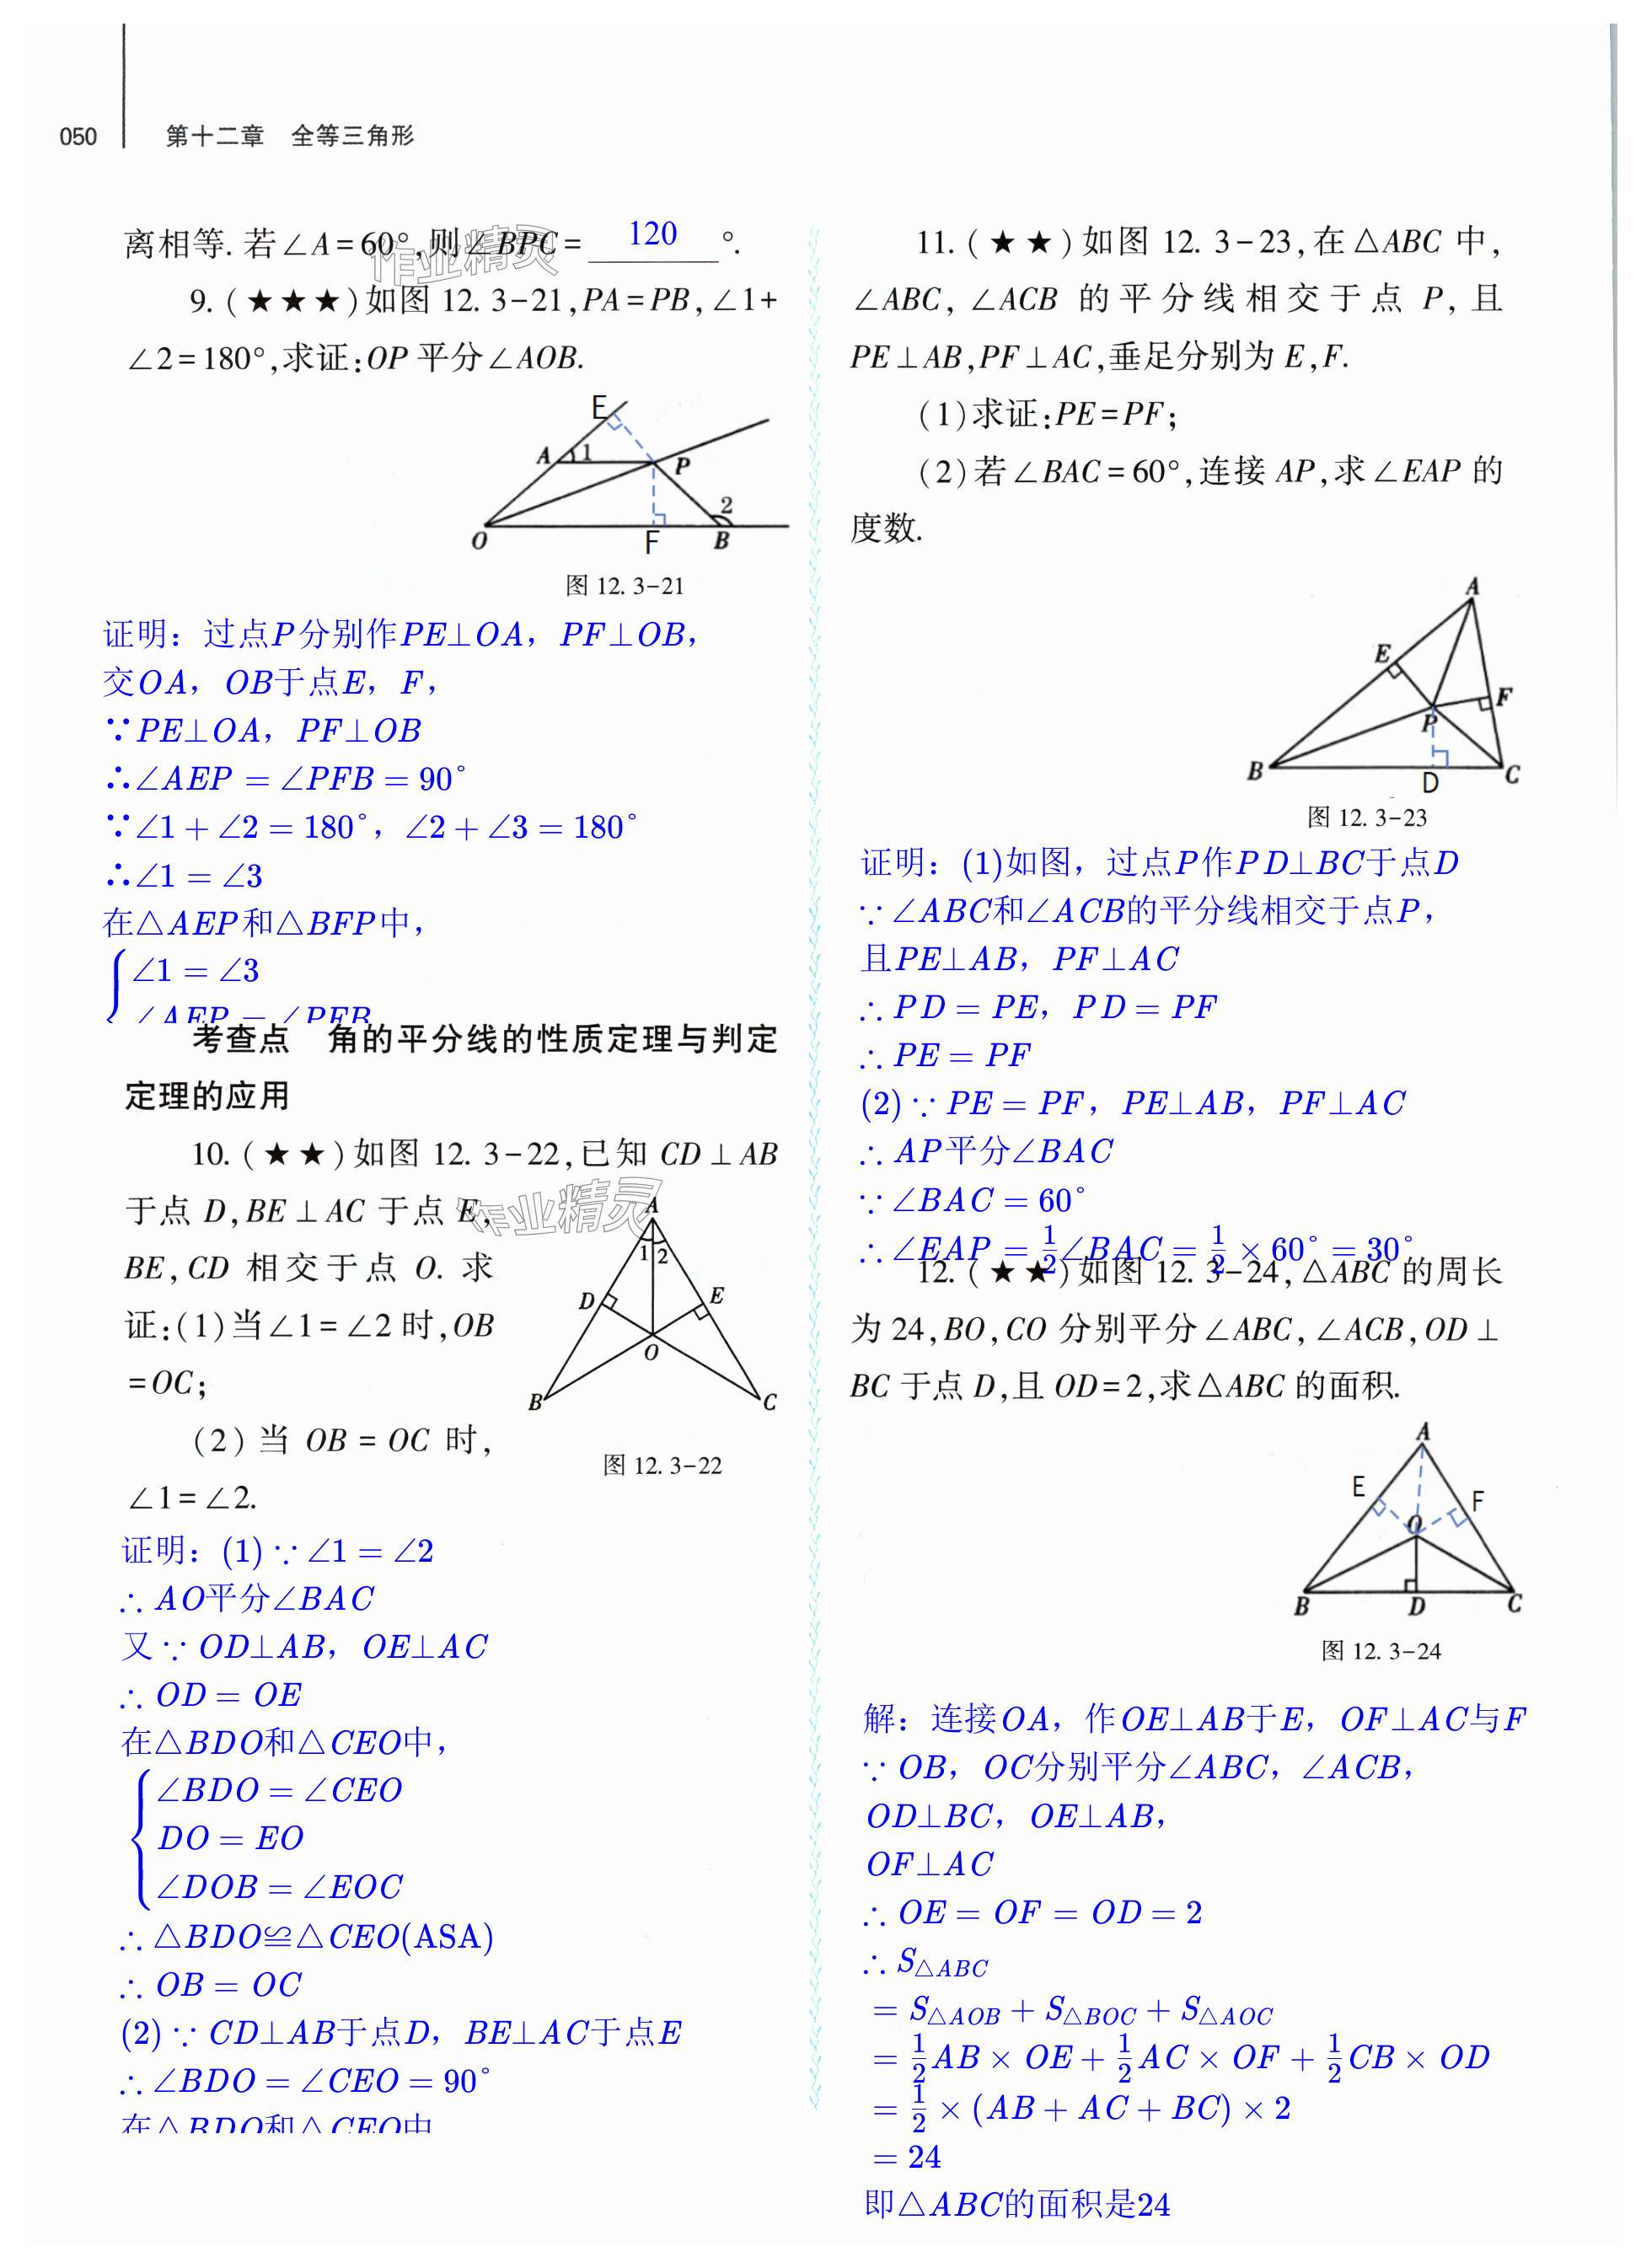 050 第十二章 全等三角形
离相等. 若∠A=60°,则∠BPC= 120 °.
9. (★★★)如图 12. 3-21,PA=PB,∠1+
∠2=180°,求证:OP 平分∠AOB.
E
A 1 P
2
O F B
图 12. 3-21
证明：过点P分别作PE⊥OA，PF⊥OB，
交OA，OB于点E，F，
∵PE⊥OA，PF⊥OB
∴∠AEP = ∠PFB = 90°
∵∠1 + ∠2 = 180°，∠2 + ∠3 = 180°
∴∠1 = ∠3
在△AEP和△BFP中，
{∠1 = ∠3
∠AEP = ∠PFB
考查点 角的平分线的性质定理与判定
定理的应用
10. (★★)如图 12. 3-22,已知 CD⊥AB
于点 D,BE⊥AC 于点 E,
BE,CD 相交于点 O. 求
证:(1)当∠1=∠2 时,OB
=OC;
(2) 当 OB = OC 时,
∠1=∠2.
A
1 2
D E
O
B C
图 12. 3-22
证明：(1)∵∠1 = ∠2
∴AO平分∠BAC
又∵OD⊥AB，OE⊥AC
∴OD = OE
在△BDO和△CEO中，
{∠BDO = ∠CEO
DO = EO
∠DOB = ∠EOC
∴△BDO≌△CEO(ASA)
∴OB = OC
(2)∵CD⊥AB于点D，BE⊥AC于点E
∴∠BDO = ∠CEO = 90°
在△BDO和△CEO中
11. (★★)如图 12. 3-23,在△ABC 中,
∠ABC, ∠ACB 的平分线相交于点 P, 且
PE⊥AB,PF⊥AC,垂足分别为 E,F.
(1)求证:PE=PF;
(2)若∠BAC=60°,连接 AP,求∠EAP 的
度数.
A
E
F
P
B D C
图 12. 3-23
证明：(1)如图，过点P作PD⊥BC于点D
∵∠ABC和∠ACB的平分线相交于点P，
且PE⊥AB，PF⊥AC
∴PD = PE，PD = PF
∴PE = PF
(2)∵PE = PF，PE⊥AB，PF⊥AC
∴AP平分∠BAC
∵∠BAC = 60°
∴∠EAP = 1/2∠BAC = 1/2 × 60° = 30°
12. (★★)如图 12. 3-24,△ABC 的周长
为 24,BO,CO 分别平分∠ABC,∠ACB,OD⊥
BC 于点 D,且 OD=2,求△ABC 的面积.
A
E F
O
B D C
图 12. 3-24
解：连接OA，作OE⊥AB于E，OF⊥AC与F
∵OB，OC分别平分∠ABC，∠ACB，
OD⊥BC，OE⊥AB，
OF⊥AC
∴OE = OF = OD = 2
∴S△ABC
= S△AOB + S△BOC + S△AOC
= 1/2AB × OE + 1/2AC × OF + 1/2CB × OD
= 1/2 × (AB + AC + BC) × 2
= 24
即△ABC的面积是24
作业精灵
作业精灵